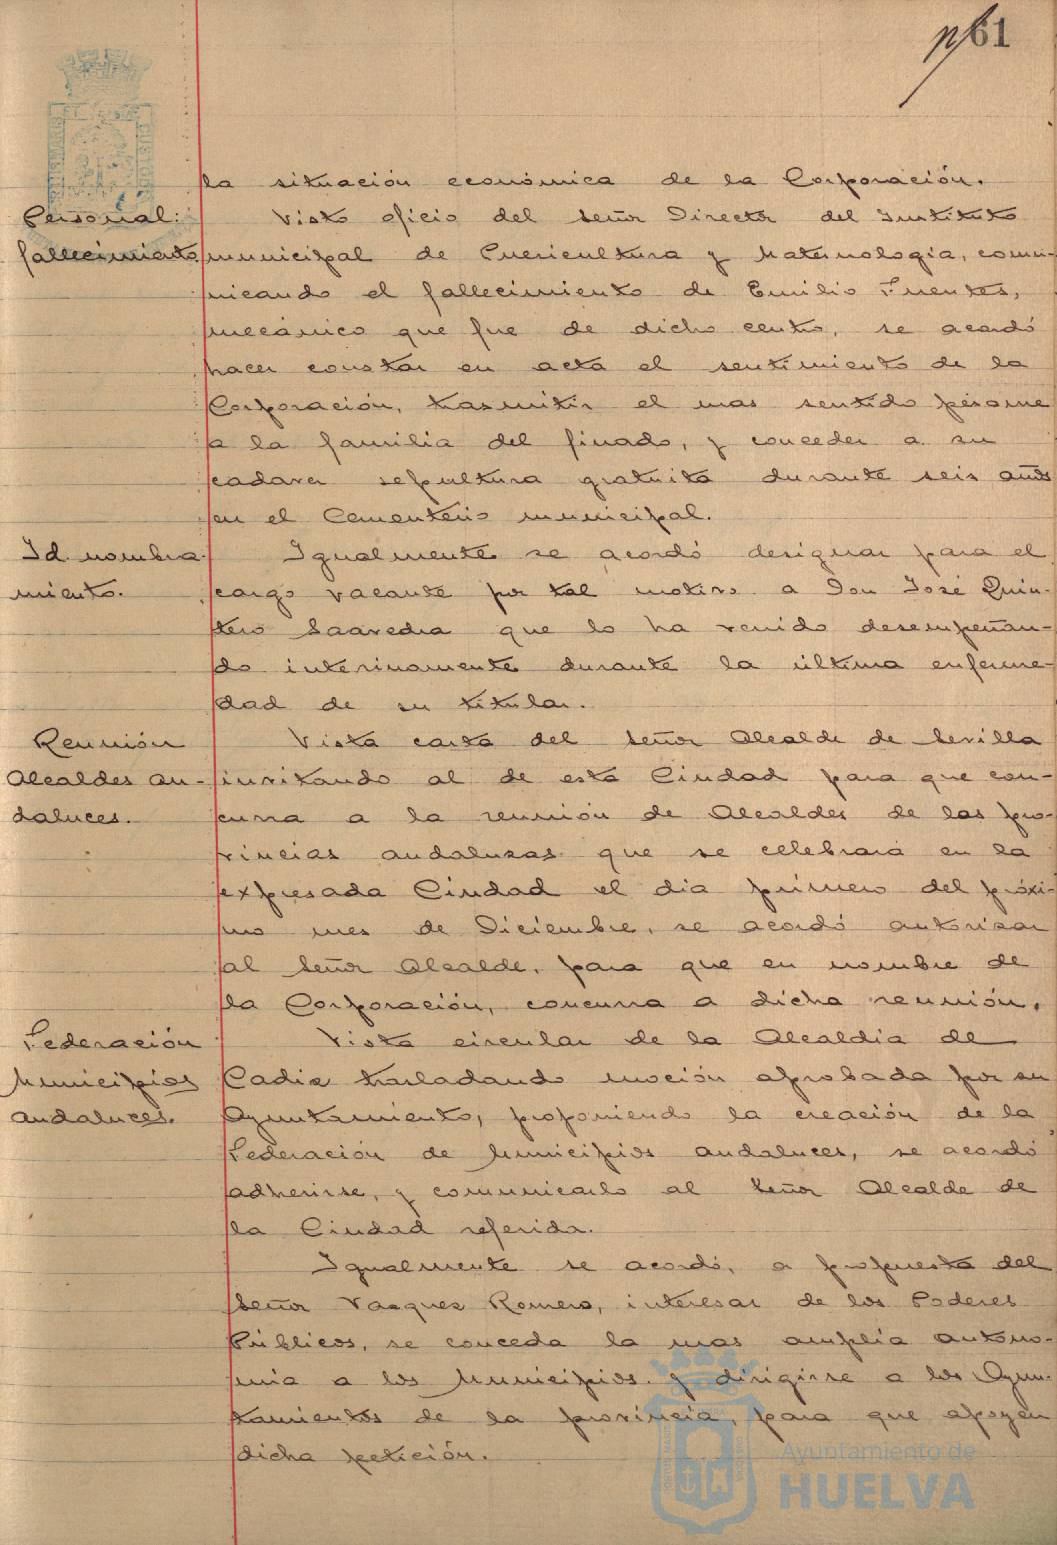 61
la situación económica de la Corporación.
Personal:
fallecimiento
Visto oficio del Señor Director del Instituto
municipal de Puericultura y Maternología, comu-
nicando el fallecimiento de Emilio Fuentes,
mecánico que fue de dicho centro, se acordó
hacer constar en acta el sentimiento de la
Corporación, trasmitir el mas sentido pésame
a la familia del finado, y conceder a su
cadaver sepultura gratuita durante seis años
en el Cementerio municipal.
Id. nombra-
miento.
Igualmente se acordó designar para el
cargo vacante por tal motivo a Don José Quin-
tero Saavedra que lo ha venido desempeñan-
do interinamente durante la última enferme-
dad de su titular.
Reunión
Alcaldes an-
daluces.
Vista carta del Señor Alcalde de Sevilla
invitando al de esta Ciudad para que con-
curra a la reunión de Alcaldes de las pro-
vincias andaluzas que se celebrará en la
expresada Ciudad el dia primero del próxi-
mo mes de Diciembre, se acordó autorizar
al Señor Alcalde, para que en nombre de
la Corporación, concurra a dicha reunión.
Federación
Municipios
andaluces.
Vista circular de la Alcaldía de
Cadiz trasladando moción aprobada por su
Ayuntamiento, proponiendo la creación de la
Federación de Municipios andaluces, se acordó
adherirse, y comunicarlo al Señor Alcalde de
la Ciudad referida.
Igualmente se acordó, a propuesta del
Señor Vazquez Romero, interesar de los Poderes
Públicos, se conceda la mas amplia autono-
mía a los Municipios y dirigirse a los Ayun-
tamientos de la provincia, para que apoyen
dicha petición.
Ayuntamiento de
HUELVA